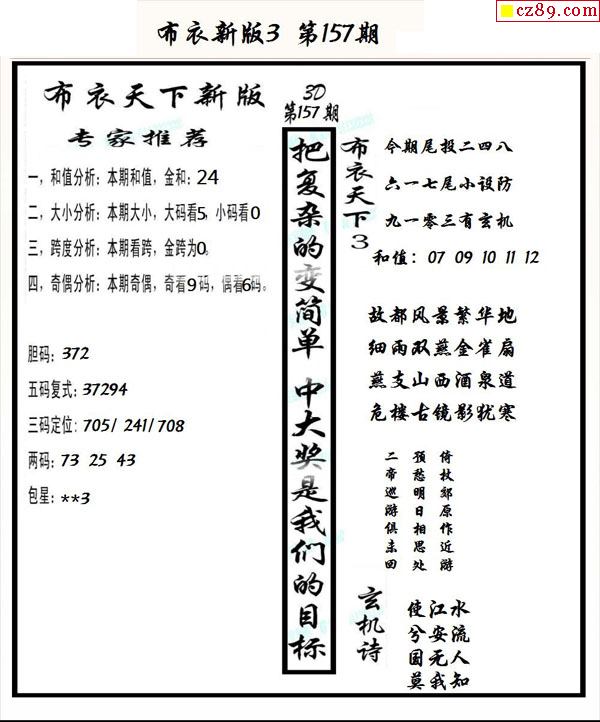 cz89.com
布衣新版3 第157期
布衣天下新版
专家推荐
一，和值分析：本期和值，金和：24
二，大小分析：本期大小，大码看5，小码看0
三，跨度分析：本期看跨，金跨为0。
四，奇偶分析：本期奇偶，奇看9码，偶看6码。
胆码：372
五码复式：37294
三码定位：705/ 241/708
两码：73 25 43
包星：**3
3D
第157期
把复杂的变简单 中大奖是我们的目标
布衣天下3
今期尾投二四八
六一七尾小设防
九一零三有玄机
和值：07 09 10 11 12
故都风景繁华地
细雨双燕金雀扇
燕支山西酒泉道
危楼古镜影犹寒
倚杖郊原作近游
预愁明日相思处
二帝巡游俱未回
玄机诗
使江水
兮安流
国无人
莫我知